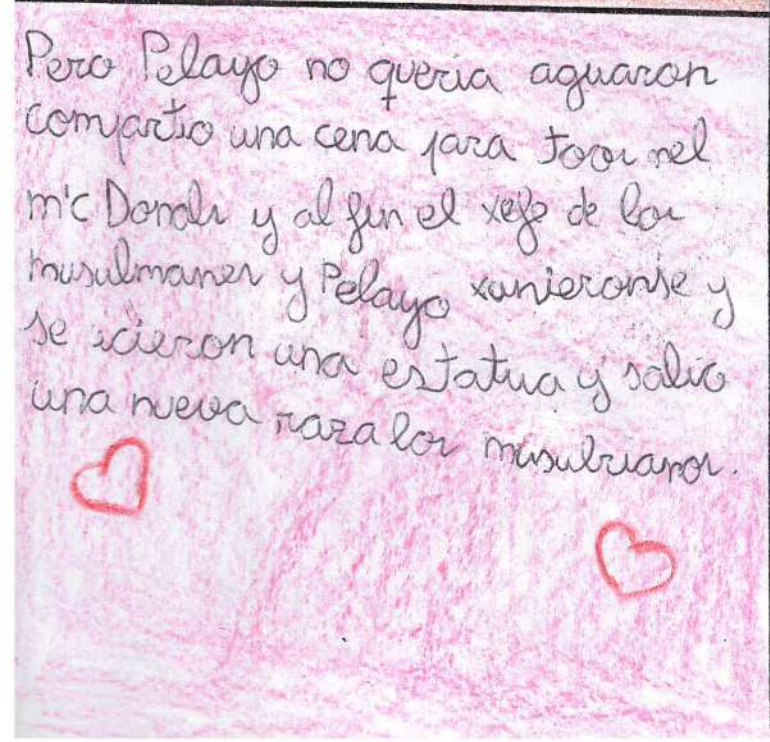 Pero Pelayo no queria aguaron
compartio una cena para toos nel
m'c Donals y al fin el xefe de los
musulmanes y Pelayo xunieronse y
se icieron una estatua y salio
una nueva raza los musulrianos.